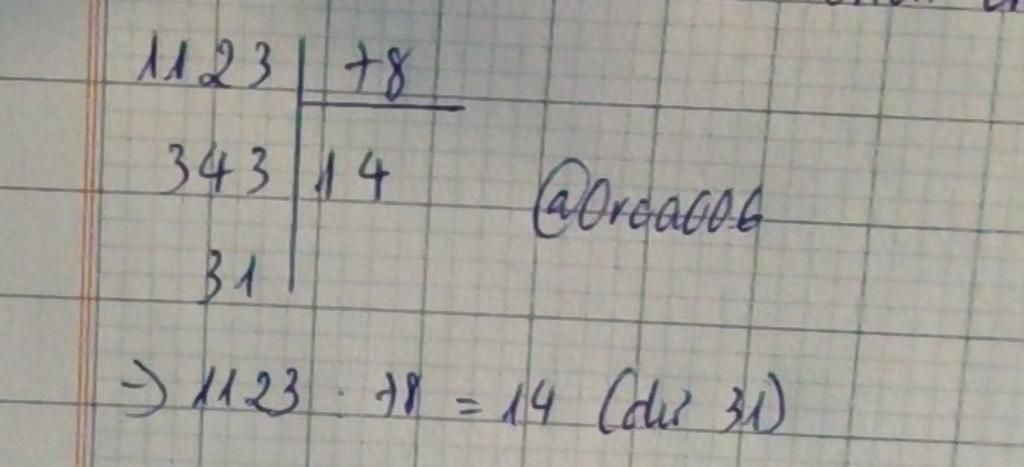 1123 78
343 14
@Oreo006
31
=> 1123 : 78 = 14 (dư 31)